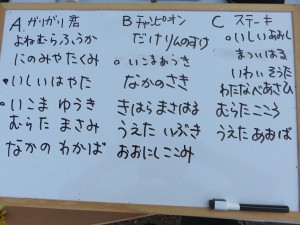 A. ガリガリ君
よねむらふうか
にのみやたくみ
・いしいはやた
・いこま ゆうき
むらた まさみ
なかの わかば
B チャンピオン
だけ りんのすけ
・いこまゆうき
なかのさき
きはらまさはる
うえた いぶき
おおにしここみ
C ステーキ
まついはる
いわい そうた
わたなべあさひ
むらたこころ
うえだ あおば